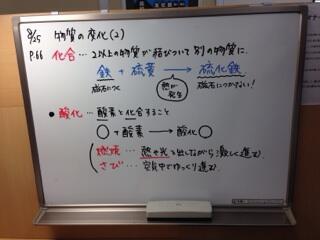 8/25 物質の変化(2)
P.66 化合…2以上の物質が結びついて別の物質に.
鉄 + 硫黄 → 硫化鉄
磁石につく 熱が発生 磁石につかない!
● 酸化…酸素と化合すること
○+酸素 → 酸化○
燃焼…熱や光を出しながら激しく進む.
さび…空気中でゆっくり進む.